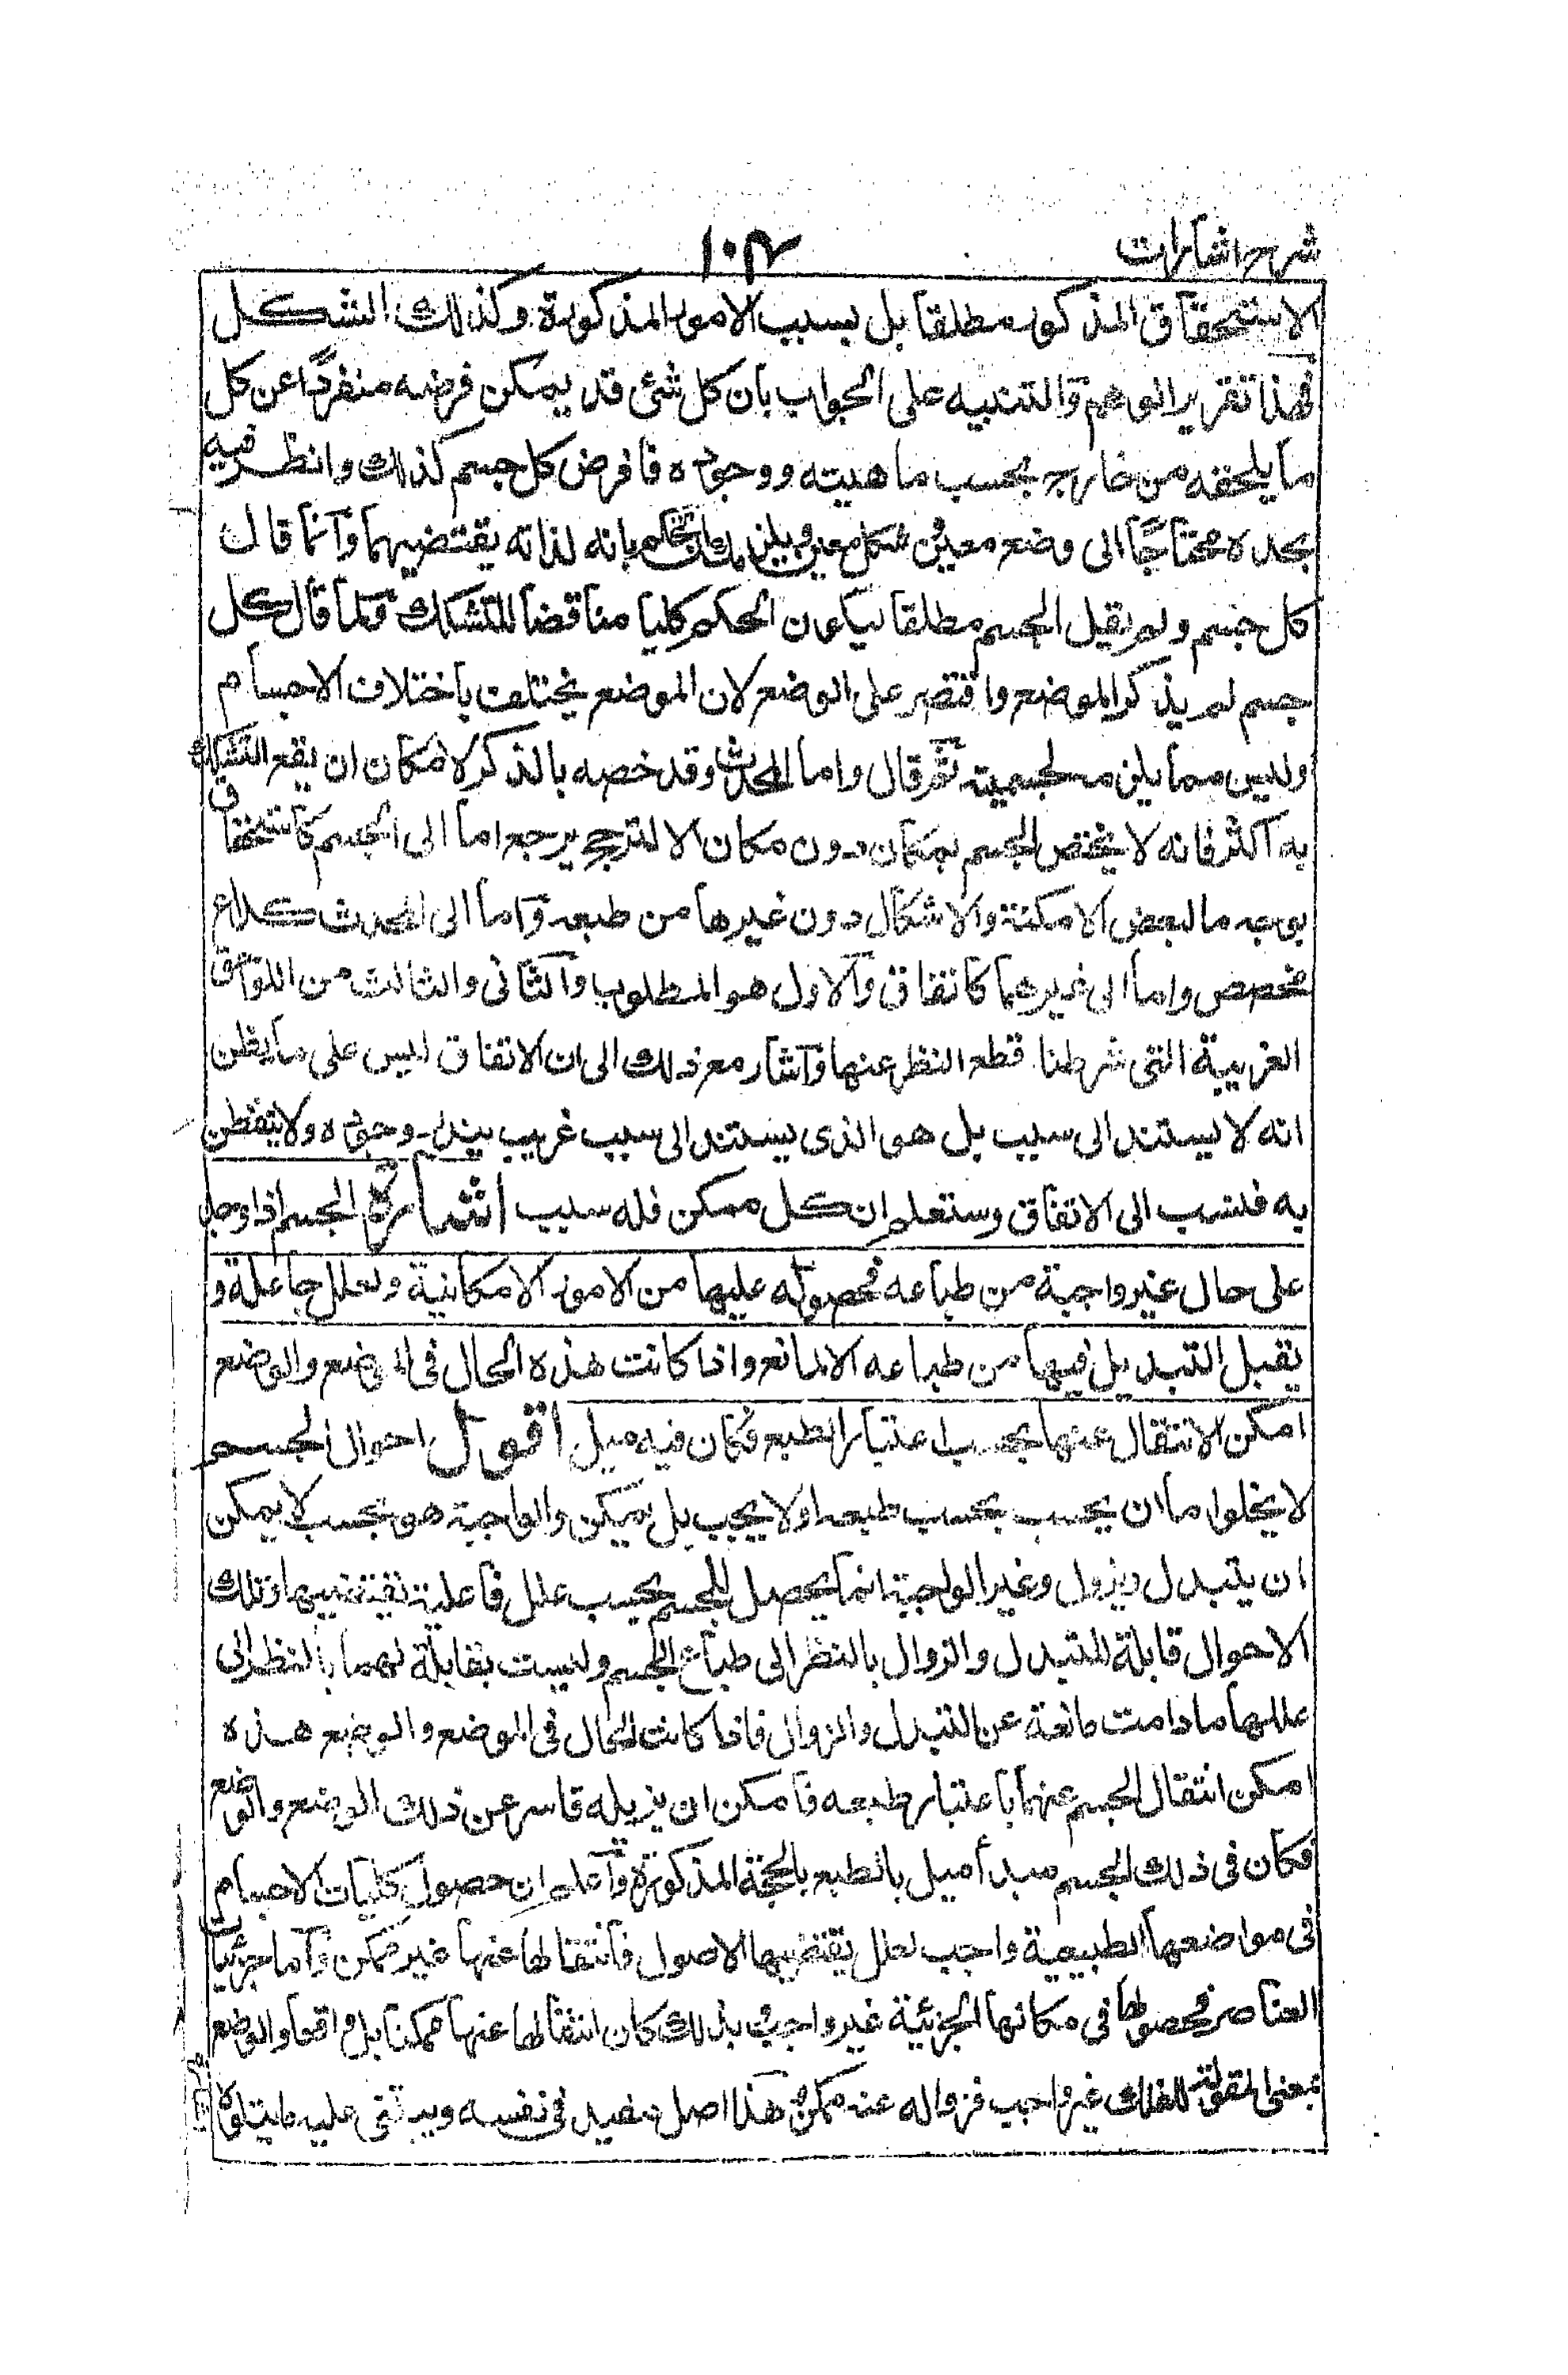 شرح اشارات
١٠٣
الاستحقاق المذكور مطلقا بل بسبب الامور المذكورة وكذلك الشكل
فهذا تقرير الوهم والتنبيه على الجواب بان كل شئ قد يمكن فرضه منفردا عن كل
ما يلحقه من خارج بحسب ماهيته ووجوده فافرض كل جسم كذلك وانظر فيه
تجده محتاجا الى وضع معين وشكل معين ويلزمك ان تحكم بانه لذاته يقتضيهما وانما قال
كل جسم ولم يقل الجسم مطلقا ليكون الحكم كليا مناقضا للتشكك ولما قال كل
جسم لم يذكر الموضع واقتصر على الوضع لان الموضع يختلف باختلاف الاجسام
وليس مما يلزم الجسمية ثم قال واما المحدث وقد خصه بالذكر لامكان ان يقع التشكك
به اكثر فانه لا يختص الجسم بمكان دون مكان الا لترجيح يرجع اما الى الجسم كاستحقاق
بوجه ما لبعض الامكنة والاشكال دون غيرها من طبعه واما الى المحدث كداع
مخصص واما الى غيرهما كاتفاق والاول هو المطلوب والثانى والثالث من اللواحق
الغريبة التى شرطنا قطع النظر عنها واشار مع ذلك الى ان الاتفاق ليس على ما يظن
انه لا يستند الى سبب بل هو الذى يستند الى سبب غريب يندر وجوده ولا يتفطن
به فنسب الى الاتفاق وستعلم ان كل ممكن فله سبب اشارة الجسم اذا وجد
على حال غير واجبة من طباعه فحصوله عليها من الامور الامكانية ولعلل جاعلة و
يقبل التبديل فيها من طباعه الا لمانع واذا كانت هذه الحال فى الموضع والوضع
امكن الانتقال عنها بحسب اعتبار الطبع فكان فيه ميل اقول احوال الجسم
لا يخلوا ما ان يجب بحسب طبعه او لا يجب بل يمكن والواجبة هو بحسب لا يمكن
ان يتبدل ويزول وغير الواجبة انما يحصل للجسم بحسب علل فاعلية تقتضيها وتلك
الاحوال قابلة للتبدل والزوال بالنظر الى طباع الجسم وليست بقابلة لهما بالنظر الى
عللها ما دامت مانعة عن التبدل والزوال فاذا كانت الحال فى الموضع والوضع هذه
امكن انتقال الجسم عنهما باعتبار طبعه فامكن ان يزيله قاسر عن ذلك الوضع والموضع
فكان فى ذلك الجسم مبدأ ميل بالطبع بالحجة المذكورة واعلم ان حصول كليات الاجسام
فى مواضعها الطبيعية واجب لعلل يقتضيها الاصول فانتقالها عنها غير ممكن واما جزئيات
العناصر فحصولها فى مكانها الجزئية غير واجب ولذلك كان انتقالها عنها ممكنا بل واقعا والوضع
بمعنى المقولة للفلك غير واجب فزواله عنه ممكن هذا اصل مفيد فى نفسه ويبتنى عليه ما يتلوه